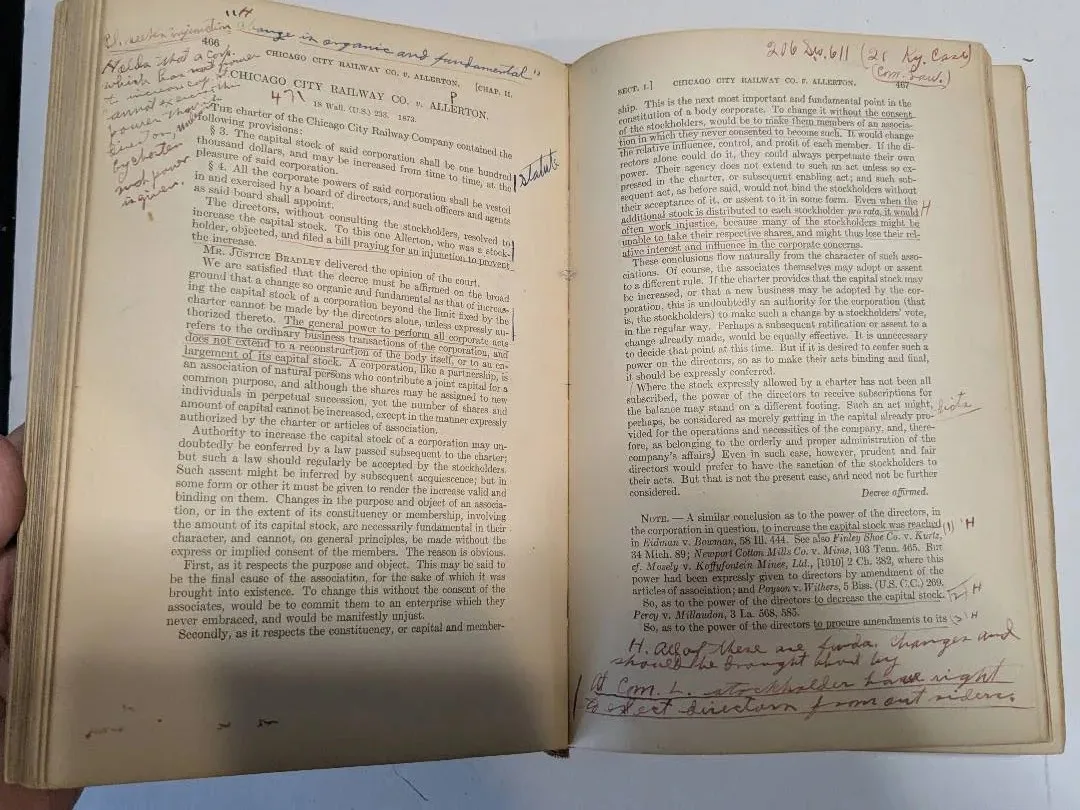 "H
Change in organic and fundamental"
466
CHICAGO CITY RAILWAY CO. v. ALLERTON.
[CHAP. II.
Holds that a Corp.
which has not power
to increase cap. st.
cannot exercise the
power
not power
is given.
CHICAGO CITY RAILWAY CO. v. ALLERTON.
P
471
18 Wall. (U.S.) 233. 1873.
The charter of the Chicago City Railway Company contained the
following provisions:
§ 3. The capital stock of said corporation shall be one hundred
thousand dollars, and may be increased from time to time, at the
pleasure of said corporation.
statute
§ 4. All the corporate powers of said corporation shall be vested
in and exercised by a board of directors, and such officers and agents
as said board shall appoint.
The directors, without consulting the stockholders, resolved to
increase the capital stock. To this one Allerton, who was a stock-
holder, objected, and filed a bill praying for an injunction to prevent
the increase.
MR. JUSTICE BRADLEY delivered the opinion of the court.
We are satisfied that the decree must be affirmed on the broad
ground that a change so organic and fundamental as that of increas-
ing the capital stock of a corporation beyond the limit fixed by the
charter cannot be made by the directors alone, unless expressly au-
thorized thereto. The general power to perform all corporate acts
refers to the ordinary business transactions of the corporation, and
does not extend to a reconstruction of the body itself, or to an en-
largement of its capital stock. A corporation, like a partnership, is
an association of natural persons who contribute a joint capital for a
common purpose, and although the shares may be assigned to new
individuals in perpetual succession, yet the number of shares and
amount of capital cannot be increased, except in the manner expressly
authorized by the charter or articles of association.
Authority to increase the capital stock of a corporation may un-
doubtedly be conferred by a law passed subsequent to the charter;
but such a law should regularly be accepted by the stockholders.
Such assent might be inferred by subsequent acquiescence; but in
some form or other it must be given to render the increase valid and
binding on them. Changes in the purpose and object of an associa-
tion, or in the extent of its constituency or membership, involving
the amount of its capital stock, are necessarily fundamental in their
character, and cannot, on general principles, be made without the
express or implied consent of the members. The reason is obvious.
First, as it respects the purpose and object. This may be said to
be the final cause of the association, for the sake of which it was
brought into existence. To change this without the consent of the
associates, would be to commit them to an enterprise which they
never embraced, and would be manifestly unjust.
Secondly, as it respects the constituency, or capital and member-
206 S.W. 611 (21 Ky. Case)
(Com. Law.)
SECT. I.]
CHICAGO CITY RAILWAY CO. v. ALLERTON.
467
ship. This is the next most important and fundamental point in the
constitution of a body corporate. To change it without the consent
of the stockholders, would be to make them members of an associa-
tion in which they never consented to become such. It would change
the relative influence, control, and profit of each member. If the di-
rectors alone could do it, they could always perpetuate their own
power. Their agency does not extend to such an act unless so ex-
pressed in the charter, or subsequent enabling act; and such sub-
sequent act, as before said, would not bind the stockholders without
their acceptance of it, or assent to it in some form. Even when the
additional stock is distributed to each stockholder pro rata, it would
H
often work injustice, because many of the stockholders might be
unable to take their respective shares, and might thus lose their rel-
ative interest and influence in the corporate concerns.
These conclusions flow naturally from the character of such asso-
ciations. Of course, the associates themselves may adopt or assent
to a different rule. If the charter provides that the capital stock may
be increased, or that a new business may be adopted by the cor-
poration, this is undoubtedly an authority for the corporation (that
is, the stockholders) to make such a change by a stockholders' vote,
in the regular way. Perhaps a subsequent ratification or assent to a
change already made, would be equally effective. It is unnecessary
to decide that point at this time. But if it is desired to confer such a
power on the directors, so as to make their acts binding and final,
it should be expressly conferred.
Where the stock expressly allowed by a charter has not been all
subscribed, the power of the directors to receive subscriptions for
the balance may stand on a different footing. Such an act might,
perhaps, be considered as merely getting in the capital already pro-
vided for the operations and necessities of the company, and, there-
fore, as belonging to the orderly and proper administration of the
company's affairs. Even in such case, however, prudent and fair
directors would prefer to have the sanction of the stockholders to
their acts. But that is not the present case, and need not be further
considered.
Decree affirmed.
NOTE. — A similar conclusion as to the power of the directors, in
the corporation in question, to increase the capital stock was reached
(1) H
in Eidman v. Bowman, 58 Ill. 444. See also Finley Shoe Co. v. Kurtz,
34 Mich. 89; Newport Cotton Mills Co. v. Mims, 103 Tenn. 465. But
cf. Mosely v. Koffyfontein Mines, Ltd., [1910] 2 Ch. 382, where this
power had been expressly given to directors by amendment of the
articles of association; and Payson v. Withers, 5 Biss. (U.S. C.C.) 269.
So, as to the power of the directors to decrease the capital stock.
(2) H
Percy v. Millaudon, 3 La. 568, 585.
So, as to the power of the directors to procure amendments to its
(3) H
H. All of these are funda. changes and
should be brought about by
At Com. L. stockholder have right
to elect directors from outsiders.